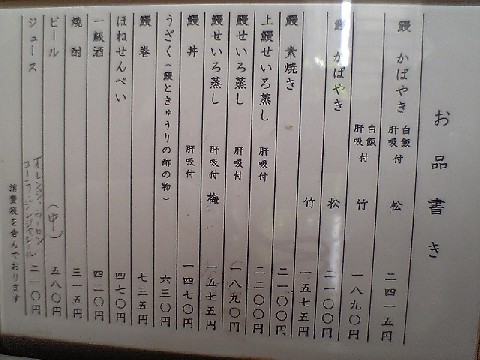 お品書き
鰻 かばやき 白飯付 肝吸付 松 二四一五円
白飯付 肝吸付 竹 一八九〇円
鰻 かばやき 松 二一〇〇円
竹 一五七五円
鰻 素焼き 二一〇〇円
上鰻せいろ蒸し 肝吸付 二二〇〇円
鰻せいろ蒸し 肝吸付 一八九〇円
鰻せいろ蒸し 肝吸付 梅 一五七五円
鰻 丼 肝吸付 一四七〇円
うざく(鰻ときゅうりの酢の物) 六三〇円
鰻 巻 七三五円
ほねせんべい 四七〇円
一級酒 四二〇円
焼 酎 三一五円
ビール (中) 五八〇円
ジュース 二一〇円
消費税を含んでおります